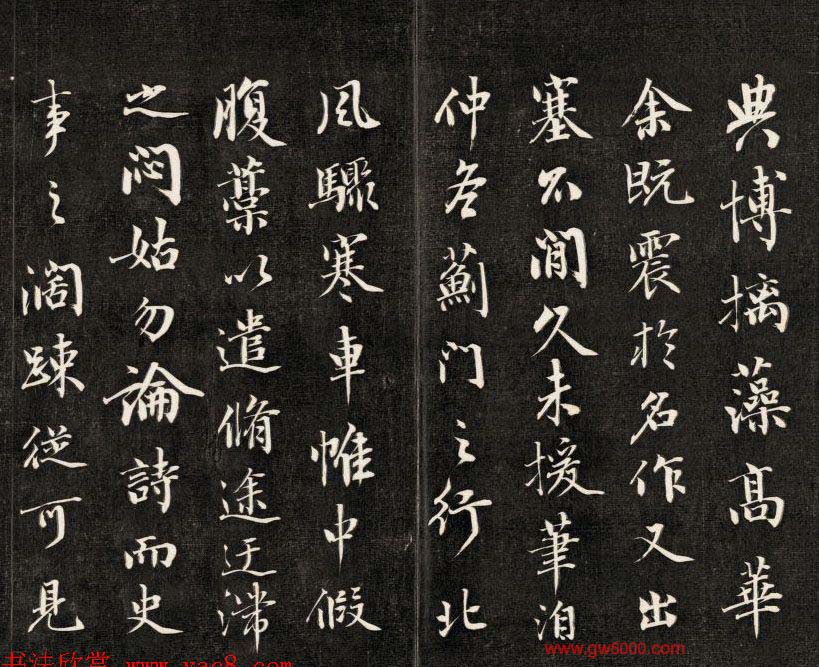 典博摛藻高華
余既震於名作又出
塞不閒久未援筆洎
仲冬薊門之行北
風驟寒車帷中假
腹藁以遣脩途迂滯
之悶姑勿論詩而史
事之濶踈從可見
www.gw5000.com
书法欣赏 www.yac8.com